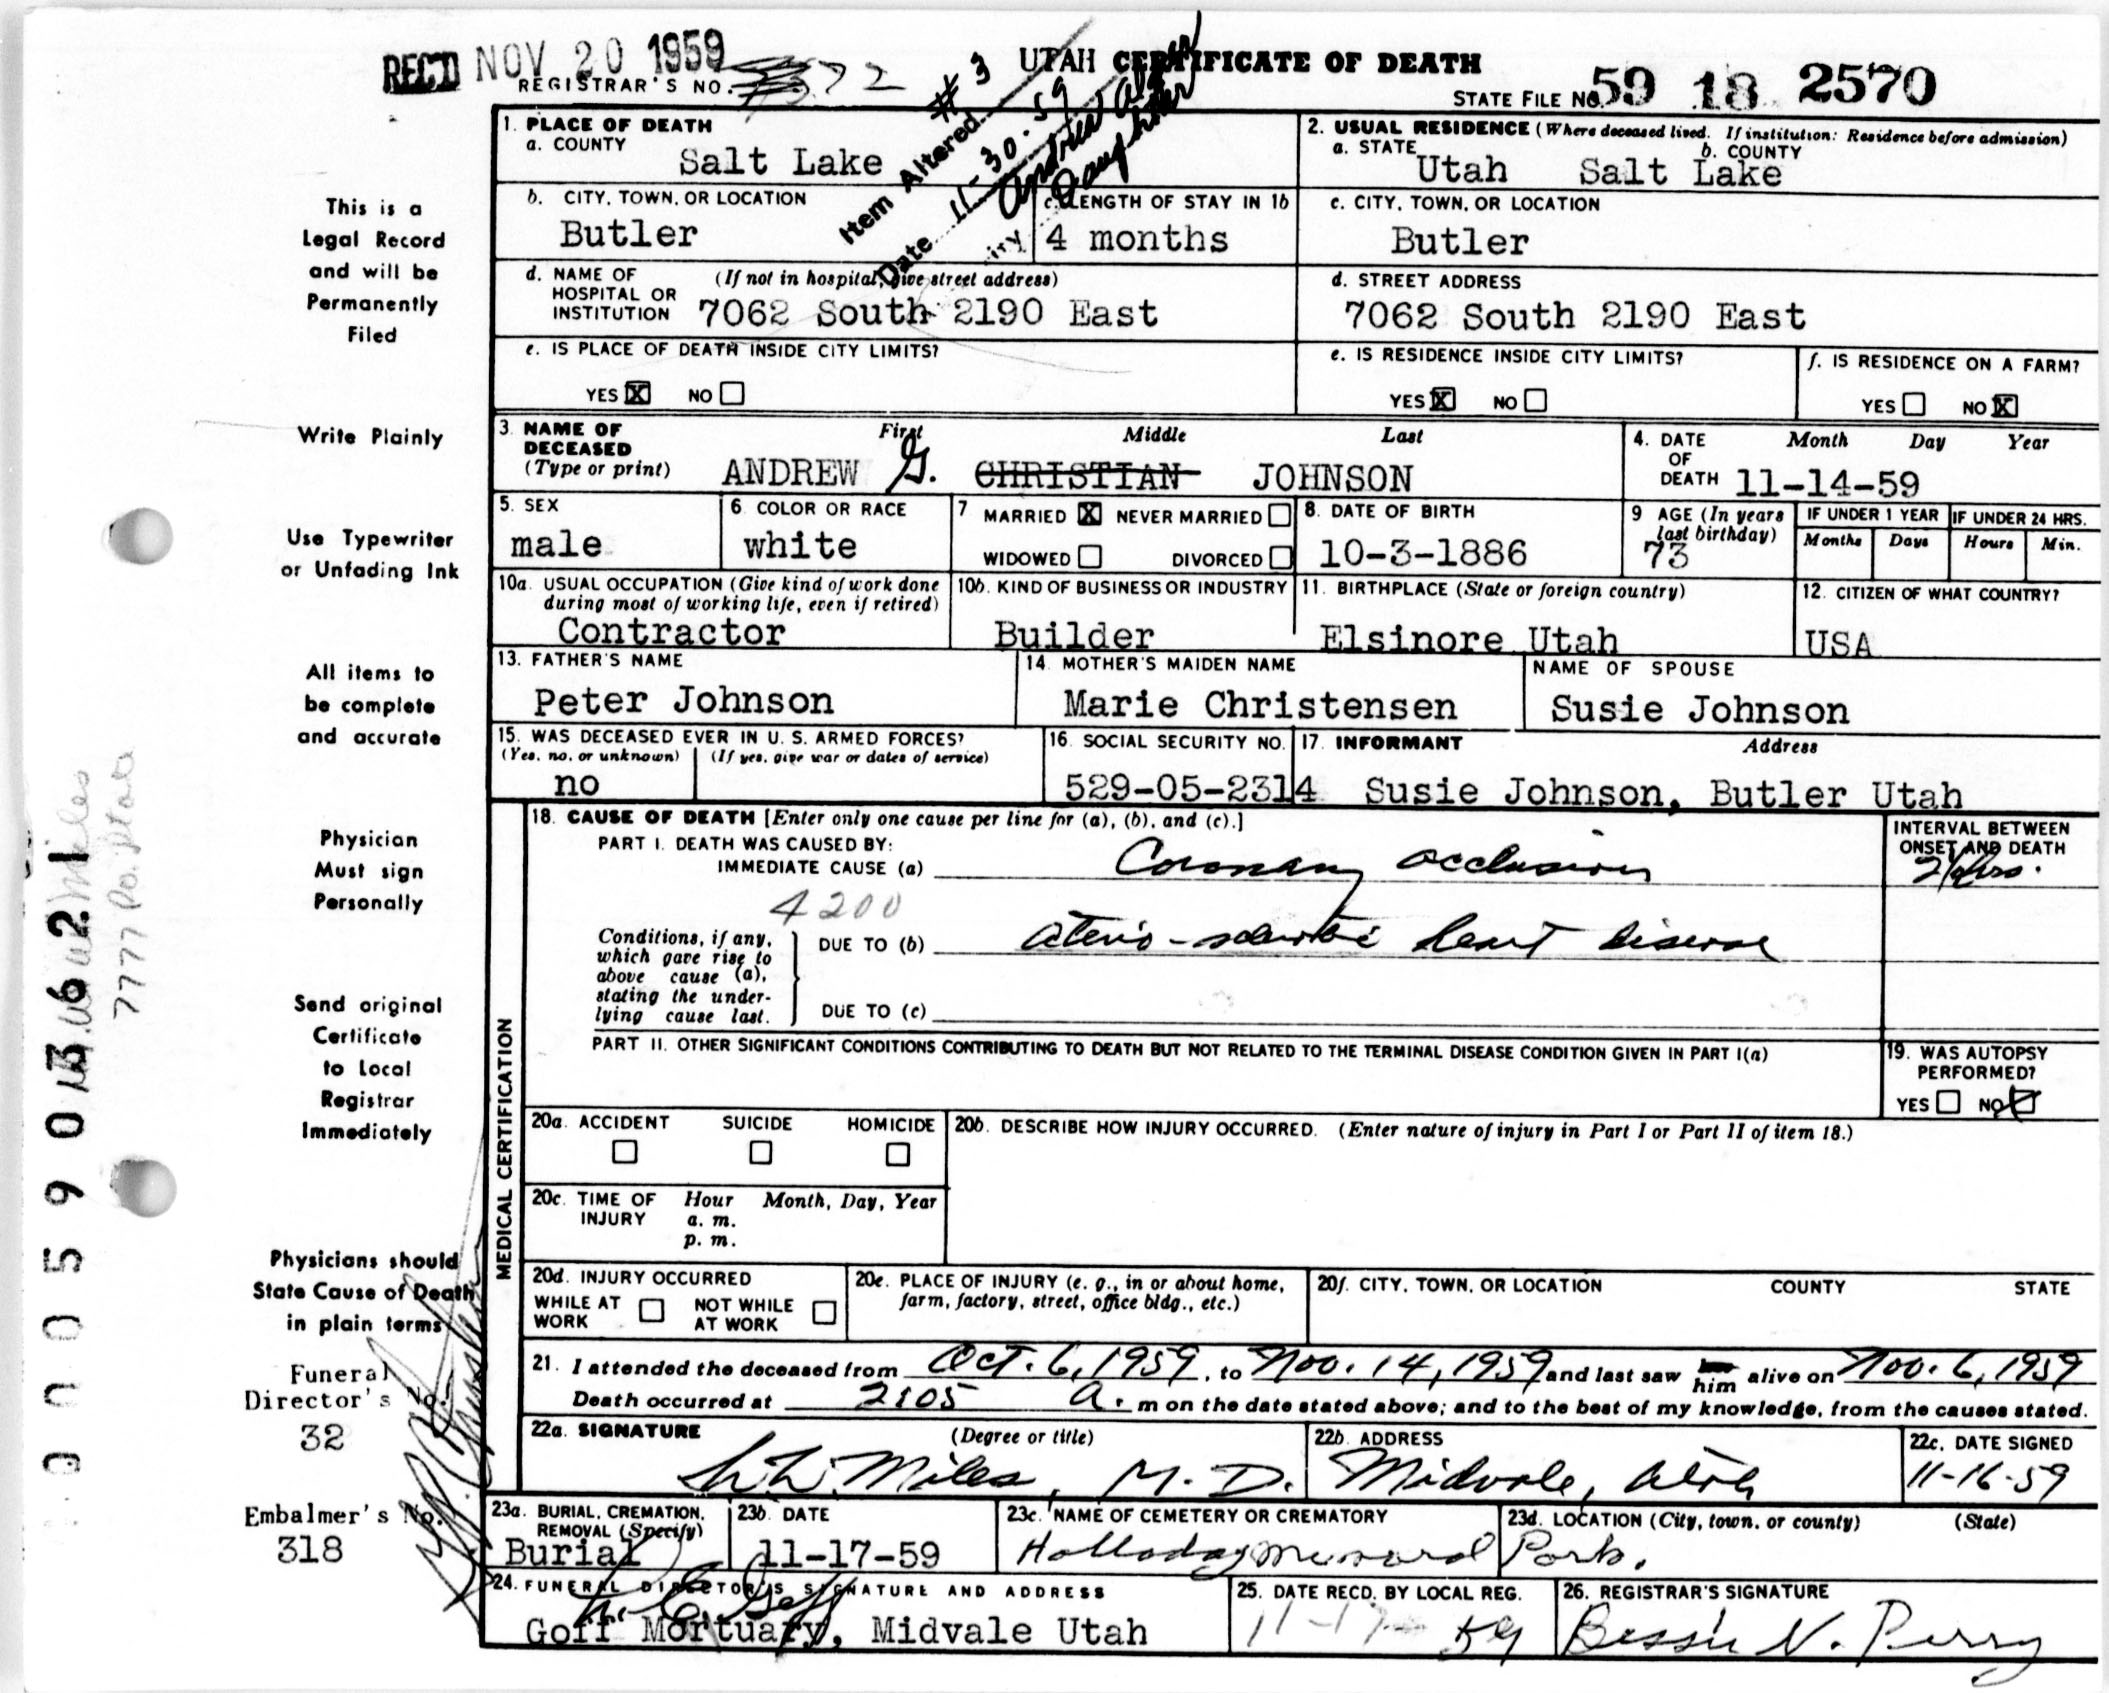 REC'D NOV 20 1959
UTAH CERTIFICATE OF DEATH
REGISTRAR'S NO. 72
STATE FILE NO. 59 18 2570
Item Altered #3
Date 11-30-59
Daughter
1. PLACE OF DEATH
a. COUNTY
Salt Lake
2. USUAL RESIDENCE (Where deceased lived. If institution: Residence before admission)
a. STATE b. COUNTY
Utah Salt Lake
b. CITY, TOWN, OR LOCATION
Butler
c. LENGTH OF STAY IN 1b
4 months
c. CITY, TOWN, OR LOCATION
Butler
d. NAME OF HOSPITAL OR INSTITUTION (If not in hospital, give street address)
7062 South 2190 East
d. STREET ADDRESS
7062 South 2190 East
e. IS PLACE OF DEATH INSIDE CITY LIMITS?
YES X NO
e. IS RESIDENCE INSIDE CITY LIMITS?
YES X NO
f. IS RESIDENCE ON A FARM?
YES NO X
3. NAME OF DECEASED (Type or print)
First Middle Last
ANDREW G. CHRISTIAN JOHNSON
4. DATE OF DEATH Month Day Year
11-14-59
5. SEX
male
6. COLOR OR RACE
white
7 MARRIED X NEVER MARRIED
WIDOWED DIVORCED
8. DATE OF BIRTH
10-3-1886
9 AGE (In years last birthday)
73
IF UNDER 1 YEAR IF UNDER 24 HRS.
Months Days Hours Min.
10a. USUAL OCCUPATION (Give kind of work done during most of working life, even if retired)
Contractor
10b. KIND OF BUSINESS OR INDUSTRY
Builder
11. BIRTHPLACE (State or foreign country)
Elsinore Utah
12. CITIZEN OF WHAT COUNTRY?
USA
13. FATHER'S NAME
Peter Johnson
14. MOTHER'S MAIDEN NAME
Marie Christensen
NAME OF SPOUSE
Susie Johnson
15. WAS DECEASED EVER IN U. S. ARMED FORCES?
(Yes, no, or unknown) (If yes, give war or dates of service)
no
16. SOCIAL SECURITY NO.
529-05-2314
17. INFORMANT Address
Susie Johnson, Butler Utah
MEDICAL CERTIFICATION
18. CAUSE OF DEATH [Enter only one cause per line for (a), (b), and (c).]
PART I. DEATH WAS CAUSED BY:
IMMEDIATE CAUSE (a) Coronary occlusion
INTERVAL BETWEEN ONSET AND DEATH
4200
Conditions, if any, which gave rise to above cause (a), stating the underlying cause last.
DUE TO (b) aterio-sclerotic heart disease
DUE TO (c)
PART II. OTHER SIGNIFICANT CONDITIONS CONTRIBUTING TO DEATH BUT NOT RELATED TO THE TERMINAL DISEASE CONDITION GIVEN IN PART I(a)
19. WAS AUTOPSY PERFORMED?
YES NO
20a. ACCIDENT SUICIDE HOMICIDE
20b. DESCRIBE HOW INJURY OCCURRED. (Enter nature of injury in Part I or Part II of item 18.)
20c. TIME OF INJURY Hour Month, Day, Year
a. m.
p. m.
20d. INJURY OCCURRED
WHILE AT WORK NOT WHILE AT WORK
20e. PLACE OF INJURY (e. g., in or about home, farm, factory, street, office bldg., etc.)
20f. CITY, TOWN, OR LOCATION COUNTY STATE
21. I attended the deceased from Oct. 6, 1959, to Nov. 14, 1959 and last saw him alive on Nov. 6, 1959
Death occurred at 2:05 A. m on the date stated above; and to the best of my knowledge, from the causes stated.
22a. SIGNATURE (Degree or title)
Miles, M. D.
22b. ADDRESS
Midvale, Utah
22c. DATE SIGNED
11-16-59
23a. BURIAL, CREMATION, REMOVAL (Specify)
Burial
23b. DATE
11-17-59
23c. NAME OF CEMETERY OR CREMATORY
Holladay Memorial
23d. LOCATION (City, town, or county) (State)
Park.
24. FUNERAL DIRECTOR'S SIGNATURE AND ADDRESS
Goff Mortuary, Midvale Utah
25. DATE RECD. BY LOCAL REG.
11-17-59
26. REGISTRAR'S SIGNATURE
Bessie N. Perry
This is a
Legal Record
and will be
Permanently
Filed
Write Plainly
Use Typewriter
or Unfading Ink
All items to
be complete
and accurate
Physician
Must sign
Personally
Send original
Certificate
to Local
Registrar
Immediately
Physicians should
State Cause of Death
in plain terms
Funeral
Director's No.
32
Embalmer's No.
318
Miles
7777 So. State